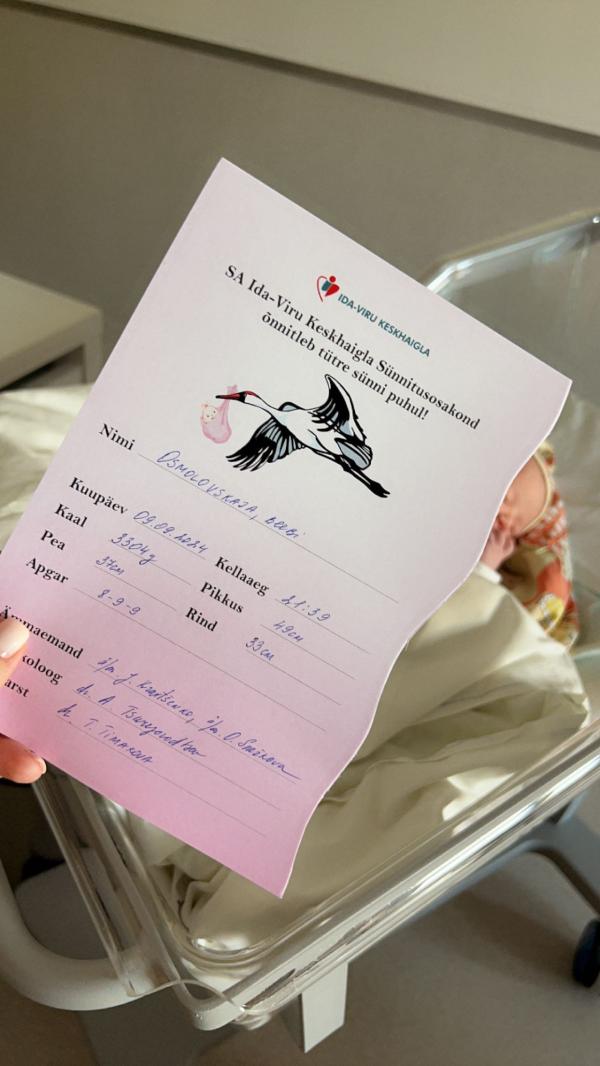 IDA-VIRU KESKHAIGLA
SA Ida-Viru Keskhaigla Sünnitusosakond
õnnitleb tütre sünni puhul!
Nimi OSMOLOVSKAJA, BEEBI
Kuupäev 09.09.2024 Kellaaeg 21:39
Kaal 3304g Pikkus 49cm
Pea 37cm Rind 33cm
Apgar 8-9-9
Ämmaemand ä/e J.
dr. A.
arst dr. T. TIMAKOVA